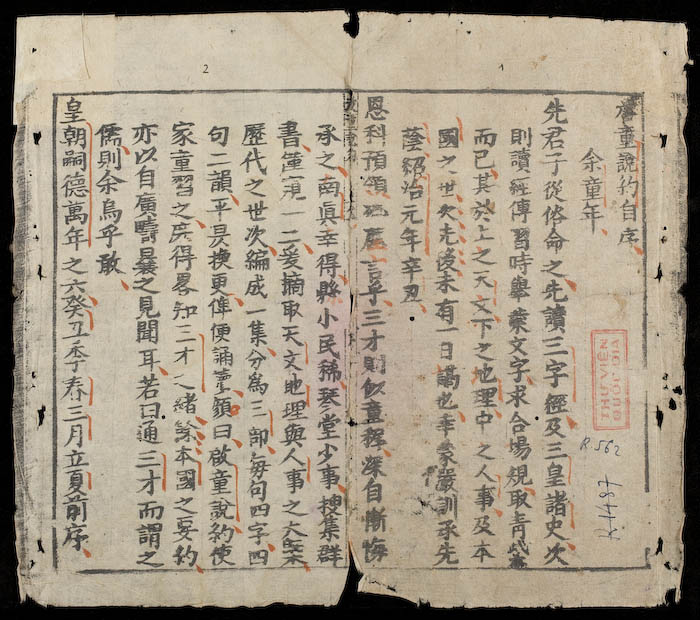 1
啟童說約自序
余童年
先君子從俗命之先讀三字經及三皇諸史次
則讀經傳習時舉業文字求合場規取青紫
而已其於上之天文下之地理中之人事及本
國之世次先後未有一日講也幸家嚴訓承先
蔭紹治元年辛丑
恩科預領鄉薦言乎三才則似童稚深自慚悔
2
承之南眞幸得縣小民稀琴堂少事搜集群
書僅一二爰摘取天文地理與人事之大槩
歷代之世次編成一集分為三部每句四字四
句二韻平昃換更俾便誦讀顏曰啟童說約使
家童習之庶得畧知三才之緒餘本國之要約
亦以自廣疇曩之見聞耳若曰通三才而謂之
儒則余烏乎敢
皇朝嗣德萬年之六癸丑季春三月立夏前序
THƯ VIỆN
QUỐC GIA
R 562
R.1487